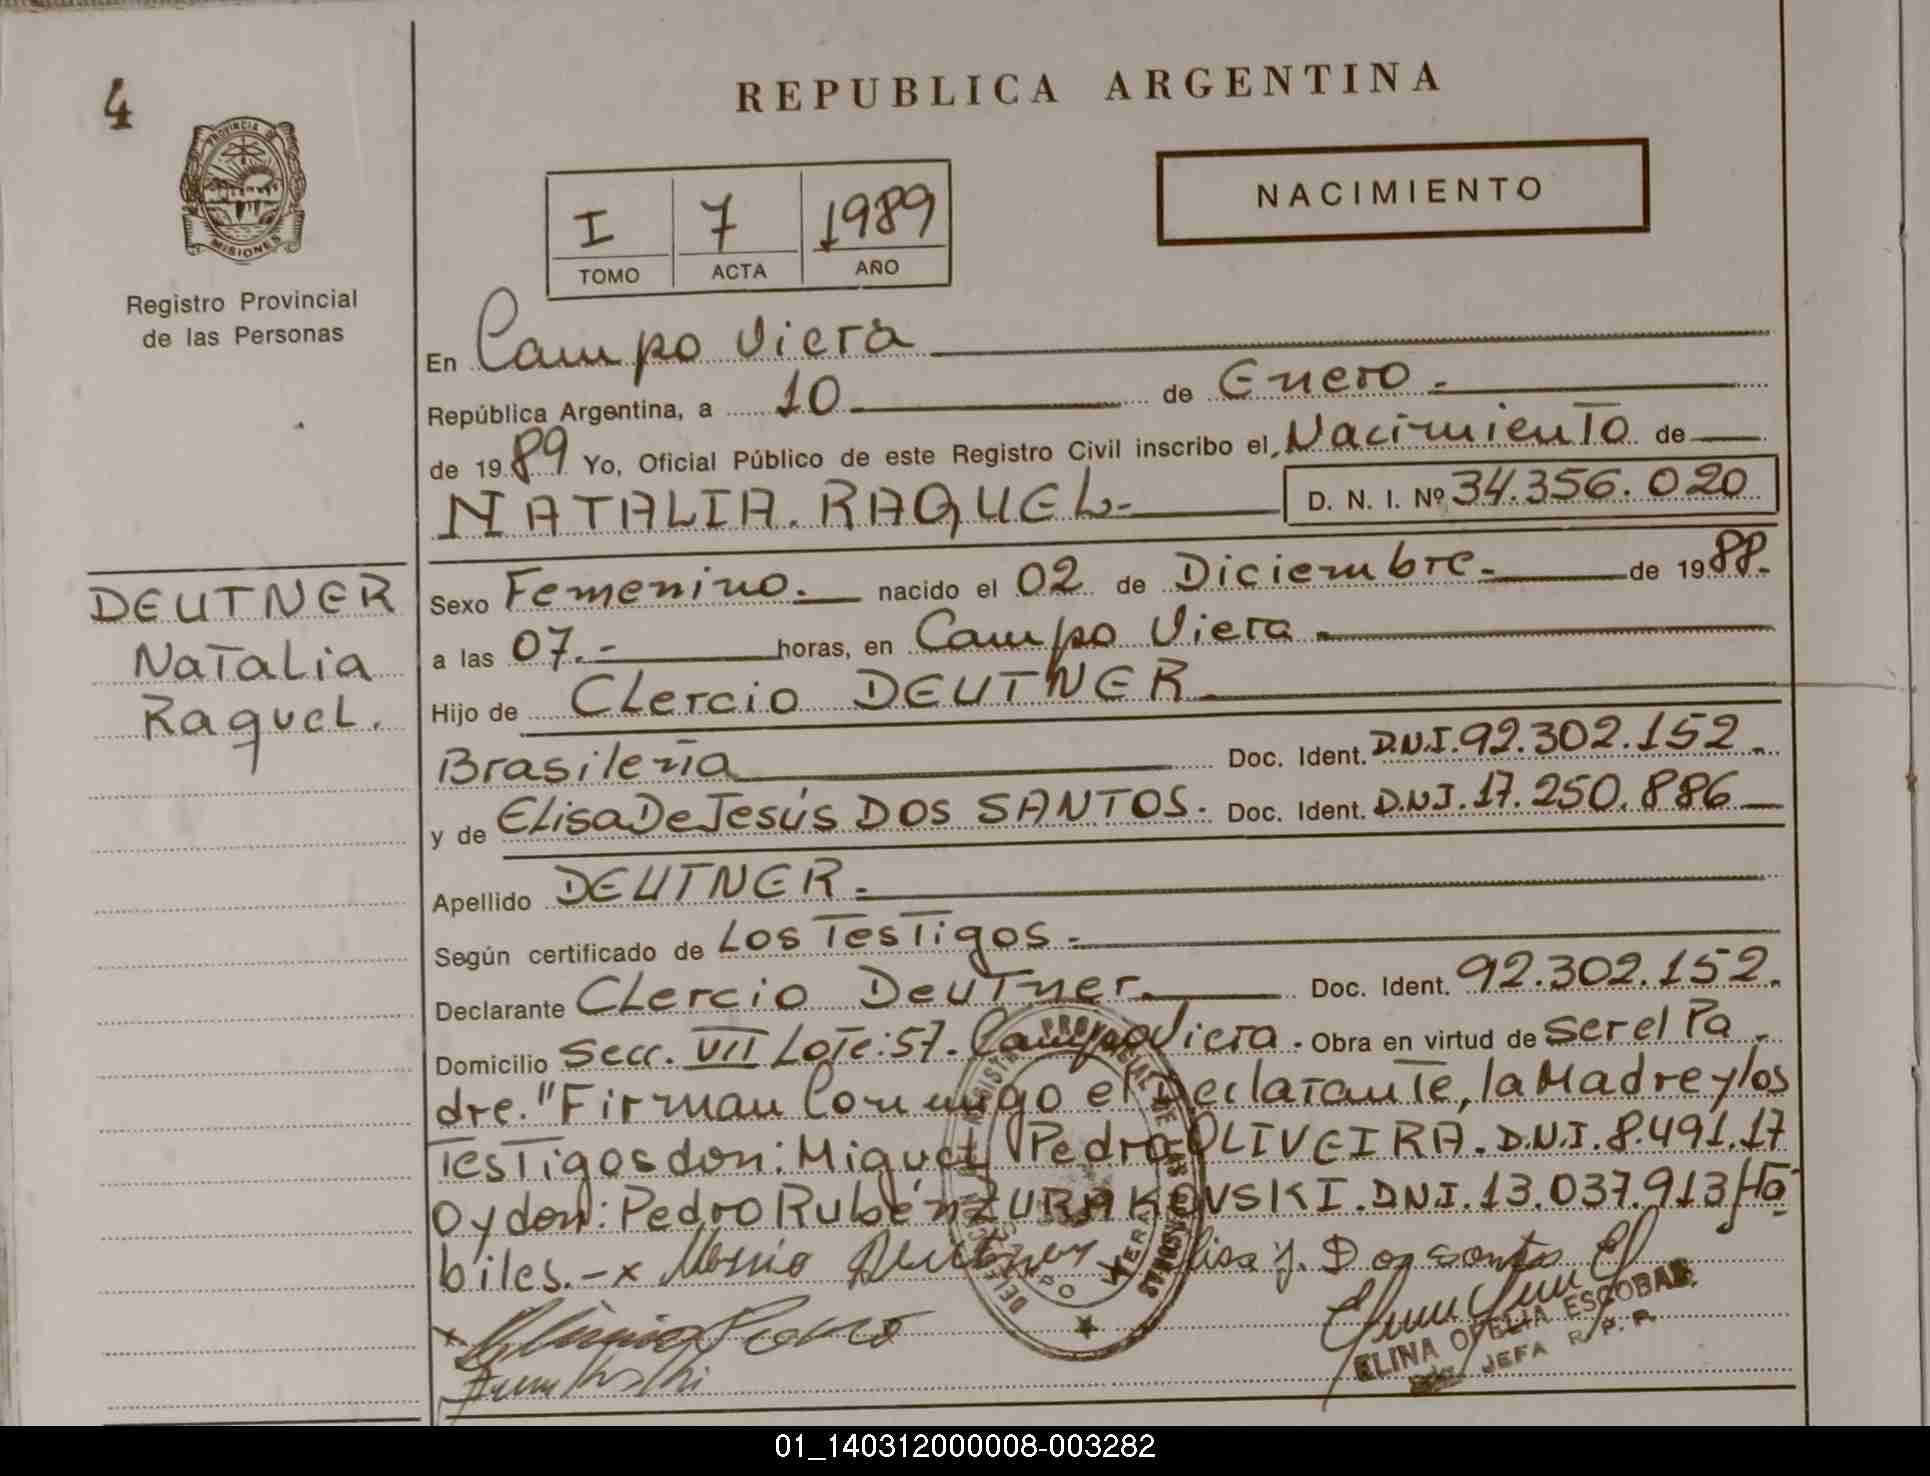 4
PROVINCIA DE
MISIONES
Registro Provincial
de las Personas
REPUBLICA ARGENTINA
I 7 1989
TOMO ACTA AÑO
NACIMIENTO
En Campo Viera
República Argentina, a 10 de Enero.-
de 1989 Yo, Oficial Público de este Registro Civil inscribo el, Nacimiento de
NATALIA. RAQUEL.- D. N. I. Nº 34.356.020
DEUTNER
Natalia
Raquel.
Sexo Femenino. nacido el 02 de Diciembre.- de 1988.-
a las 07.- horas, en Campo Viera.
Hijo de Clercio DEUTNER.
Brasileña Doc. Ident. D.N.I. 92.302.152.
y de Elisa De Jesús DOS SANTOS. Doc. Ident. D.N.I. 17.250.886
Apellido DEUTNER.
Según certificado de Los Testigos.-
Declarante Clercio Deutner. Doc. Ident. 92.302.152.
Domicilio Secc. VII Lote:57. Campo Viera. Obra en virtud de ser el Pa
dre."Firman Conmigo el Declarante, la Madre y los
Testigos don: Miguel Pedro OLIVEIRA. D.N.I. 8.491.17
0 y don: Pedro Rubén ZURAKOVSKI. DNI. 13.037.913 Há
biles.-x Deutner Elisa J. Dos santos
ELINA OFELIA ESCOBAR
JEFA R. P. P.
01_140312000008-003282